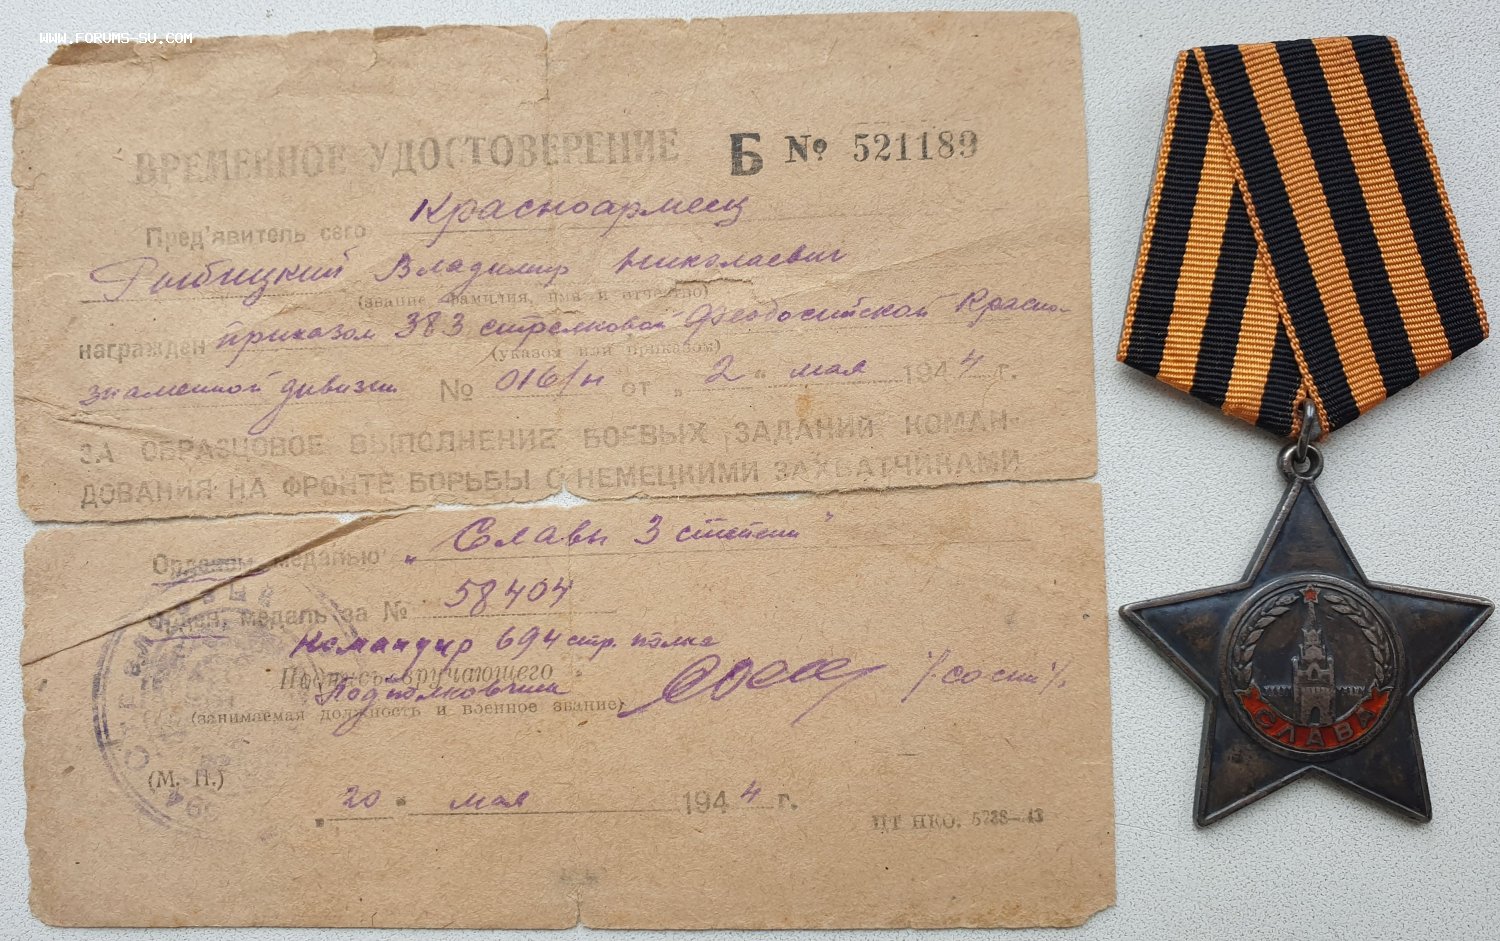 WWW.FORUMS-SU.COM
ВРЕМЕННОЕ УДОСТОВЕРЕНИЕ Б № 521189
Пред'явитель сего Красноармеец
Рыбицкий Владимир Николаевич
(звание, фамилия, имя и отчество)
награжден приказом 383 стрелковой Феодосийской Красно-
(указом или приказом)
знаменной дивизии № 016/н от „ 2 " мая 1944 г.
ЗА ОБРАЗЦОВОЕ ВЫПОЛНЕНИЕ БОЕВЫХ ЗАДАНИЙ КОМАН-
ДОВАНИЯ НА ФРОНТЕ БОРЬБЫ С НЕМЕЦКИМИ ЗАХВАТЧИКАМИ
Орденом, медалью „Славы 3 степени"
Орден, медаль за № 58404
Командир 694 стр. полка
Подпись вручающего
Подполковник
(занимаемая должность и военное звание)
(М. П.)
„ 20 " мая 1944 г.
ЦТ НКО. 5738—43
СЛАВА